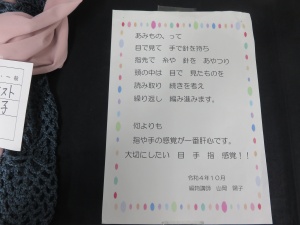 あみもの、って
目で見て 手で針を持ち
指先で 糸や 針を あやつり
頭の中は 目で 見たものを
読み取り 続きを考え
繰り返し 編み進みます。
何よりも
指や手の感覚が一番肝心です。
大切にしたい 目 手 指 感覚！！
令和4年10月
編物講師
子
スト
子